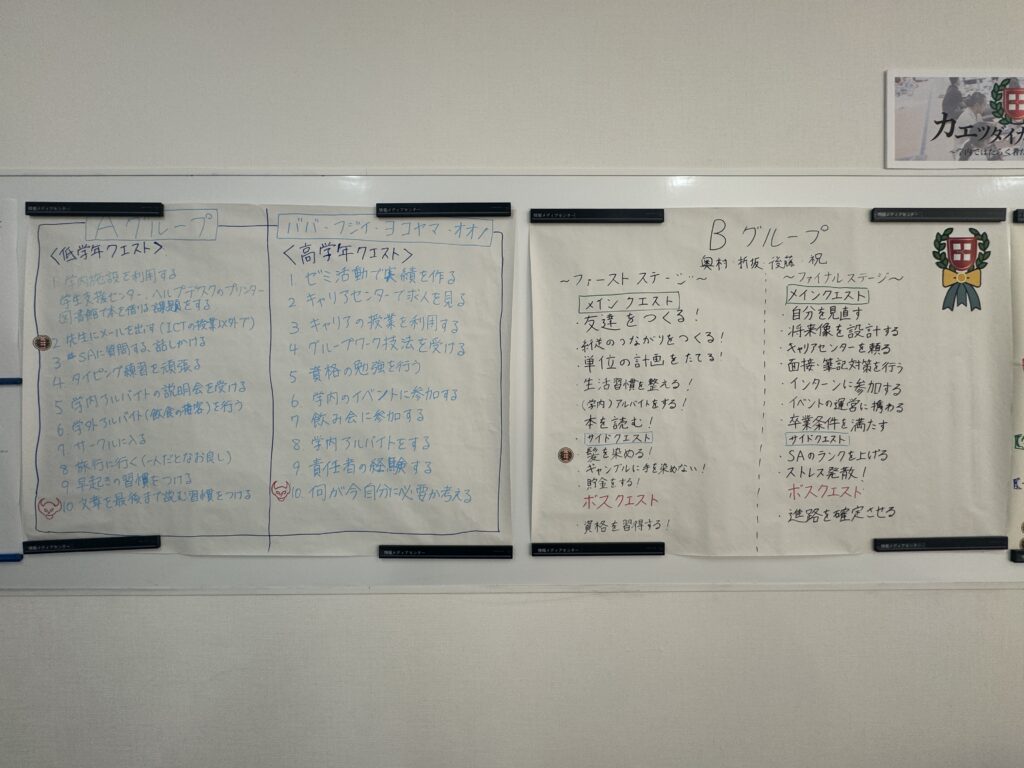 カエツダイナ
～学内ではたらく君た
情報メディアセンター
情報メディアセンター
情報メディアセンター
情報メディアセンター
Aグループ
ババ・フジイ・ヨコヤマ・オオノ
<低学年クエスト>
1 学内施設を利用する
学生支援センター、ヘルプデスクのプリンター
図書館で本を借りる
課題をする
2 先生にメールを出す(ICTの授業以外で)
3 SAに質問する、話しかける
4 タイピング練習を頑張る
5 学内アルバイトの説明会を受ける
6 学外アルバイト(飲食の接客)を行う
7 サークルに入る
8 旅行に行く(一人だとなお良し)
9 早起きの習慣をつける
10. 文章を最後まで読む習慣をつける
<高学年クエスト>
1 ゼミ活動で実績を作る
2 キャリアセンターで求人を見る
3 キャリアの授業を利用する
4 グループワーク技法を受ける
5 資格の勉強を行う
6 学内のイベントに参加する
7 飲み会に参加する
8 学内アルバイトをする
9 責任者の経験する
10. 何が今自分に必要か考える
情報メディアセンター
情報メディアセンター
Bグループ
奥村・折坂・後藤・祝
～ファースト ステージ～
メイン クエスト
・友達をつくる!
・のつながりをつくる!
・単位の計画をたてる!
・生活習慣を整える!
・(学内)アルバイトをする!
・本を読む!
・サイドクエスト
・髪を染める!
・ギャンブルに手を染めない!
・貯金をする!
ボスクエスト
・資格を習得する!
～ファイナルステージ～
メインクエスト
・自分を見直す
・将来像を設計する
・キャリアセンターを頼る
・面接・筆記対策を行う
・インターンに参加する
・イベントの運営に携わる
・卒業条件を満たす
サイドクエスト
・SAのランクを上げる
・ストレス発散!
ボスクエスト
・進路を確定させる
情報メディアセンター
情報メディアセンター